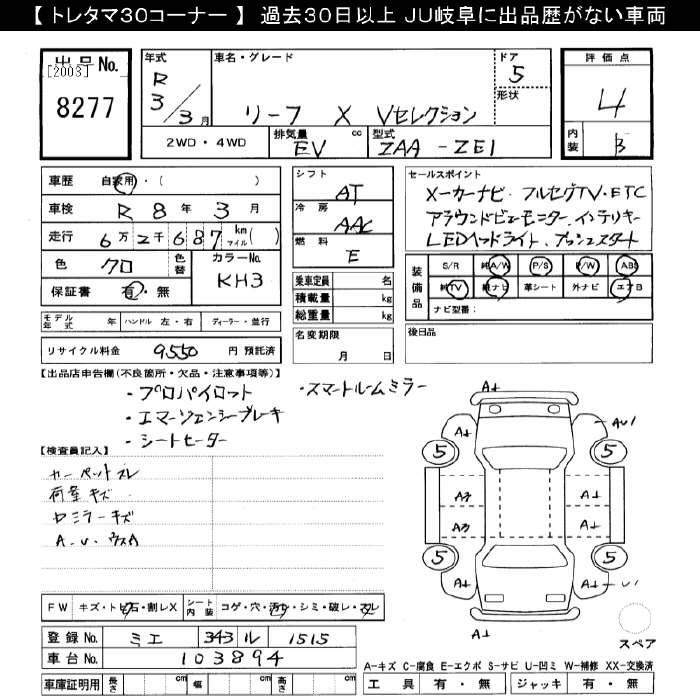 【トレタマ30コーナー】 過去30日以上 JU岐阜に出品歴がない車両
出品No. [2003] 8277
年式 R 3/3月
車名・グレード リーフ X Vセレクション
ドア 5 形状
評価点 4
内装 B
2WD・4WD 排気量 EV cc 型式 ZAA-ZE1
車歴 自家用・( )
車検 R 8年 3月
走行 6万2千687 km マイル( )
色 クロ 色替 カラーNo. KH3
保証書 有・無
シフト AT
冷房 AAC
燃料 E
乗車定員 名
積載量 kg
総重量 kg
セールスポイント
メーカーナビ・フルセグTV・ETC
アラウンドビューモニター、インテリキー
LEDヘッドライト、プッシュスタート
装備品 S/R 純A/W P/S P/W ABS
純TV 純ナビ 革シート 外ナビ エアB
ナビ型番:
モデル年式 年 ハンドル 左・右 ディーラー・並行
名変期限 月 日
後日品
リサイクル料金 9550 円 預託済
【出品店申告欄(不良箇所・欠品・注意事項等)】
・プロパイロット ・スマートルームミラー
・エマージェンシーブレーキ
・シートヒーター
【検査員記入】
カーペットスレ
荷室キズ
Dミラーキズ
A.U.ウスA
A1
A1 AU1
5 5
A2 A1
A2 A1
5 5
A1 A1 U1
A1
スペア
FW キズ・トビ石・割レX シート内装 コゲ・穴・汚レ・シミ・破レ・スレ
登録No. ミエ 343 ル 1515
車台No. 103894
車庫証明用 長さ cm 幅 cm 高さ cm
A-キズ C-腐食 E-エクボ S-サビ U-凹ミ W-補修 XX-交換済
工具 有・無 ジャッキ 有・無